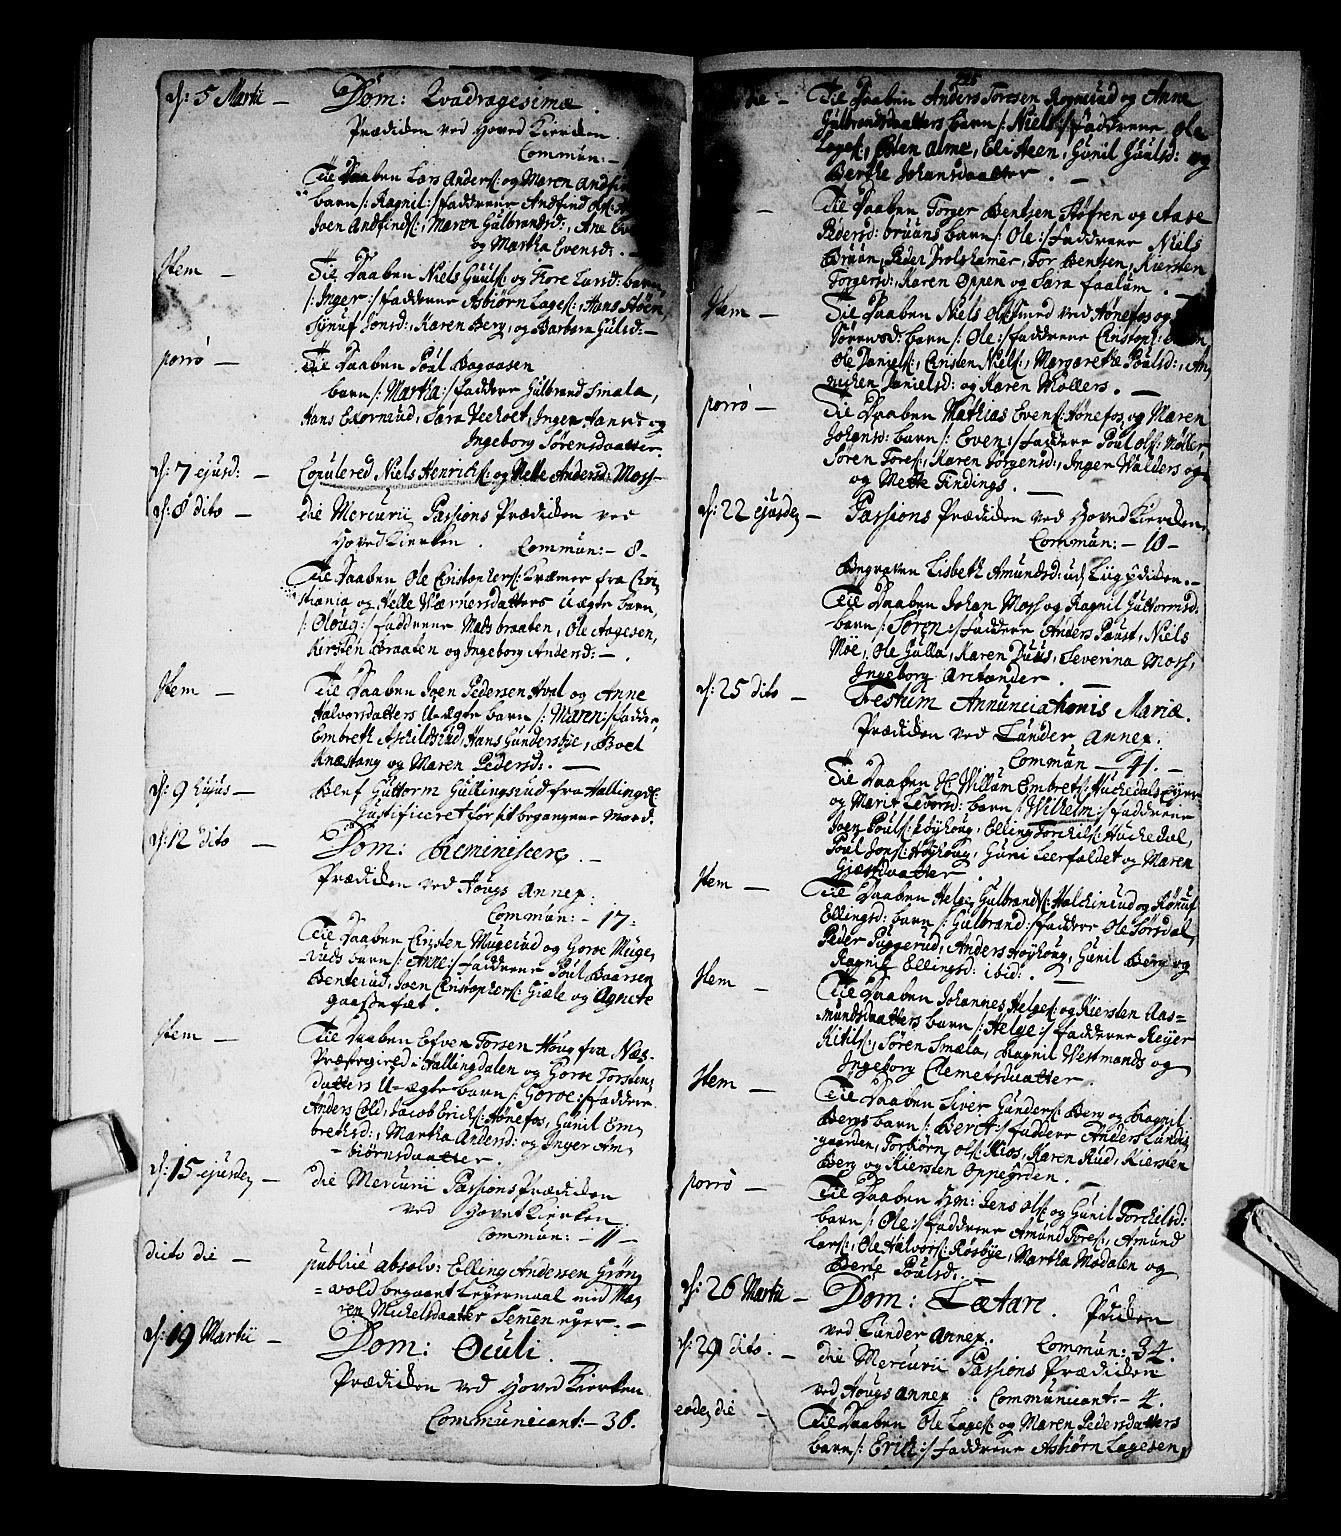 d: 5 Martii — Dom: Qvadragesimæ.
Prædiken ved Hoved Kierken.
Commun: —
Till Daaben Lars Anders: og Maren Andfin
barn /: Ragnil :/ faddrene Andfind Ols:
Joen Andfinds:, Maren Gulbrandsd:, Ane Ev
og Martha Evensd: . —
Item — Till Daaben Niels Guuls: og Tore Larsd: barn,
/: Inger :/ faddrene Asbiørn Lages:, Hans Støen,
Synuf Jonsd:, Karen Berg, og Barbara Gulsd: —
porrò — Till Daaben Poul Bagaasen
barn /: Martha :/ faddere Gulbrand Smala,
Hans Exorneiud, Sara Veeholt, Inger Hannes og
Ingeborg Sørensdaatter.
d: 7 ejusd: — Copulered Niels Henrichs: og Helle Andersd: Moss —
d: 8 dito — die Mercurii Passions Prædiken ved
Hoved Kierken. Commun: — 8 —
Till Daaben Ole Cristophers: Kræmer fra Chri,
stiania og Helle Værnersdatters Uægte barn,
/: Oloug :/ faddrene Mads braaten, Ole Aagesen,
Kersten Braaten og Ingeborg Andersd: — .
Item — Till Daaben Joen Pedersen Hval og Anne
Halvorsdatters U-ægte barn /: Maren :/ faddr,
Embreth Aschildsrud, Hans Gundersbye, Boel
Knæstang og Maren Pedersd: . —
d: 9 hujus — Blef Guttorm Gullingsrud fra Hallingd:
Justificeret for sit begangene Mord.
d: 12 dito — Dom: Reminiscere. —
Prædiken ved Hougs Annex.
Commun: — 17:
Till Daaben Cristen Mugerud og Goroe Muge,
ruds barn /: Anne :/ faddrene Poul Baarsen
Benterud, Joen Cristophers: Giæle og Agnete
Gaasefæt.
Item — Till Daaben Efven Torsen Houg fra Næs-
Præstegield i Hallingdalen og Goroe Torsten,
datters U-ægte barn /: Goroe :/ faddere
Anders Cold, Jacob Erichs: Hønefos, Gunil Em,
brethsd:, Martha Andersd: og Inger Am,
biørnsdaatter.
d: 15 ejusdem — die Mercurii Passions Prædiken
ved Hovet Kierken.
Commun: — 11 —
dicto die — publicè absolv: Elling Andersen Grøn,
vold begaaet Leyermaal med Ma,
ren Michelsdaatter Semen eyer. —
d: 19 Martii — Dom: Oculi.
Prædiken ved Hoved Kierken
Communicant: — 36.
die — Till Daaben Anders Toresen Rognerud og Anne
Gulbrandsdaatters barn /: Niels :/ faddrene Ole
Lages:, Peden Alme, Eli Aeen, Gunil Guulsd: og
Berthe Johansdaatter. —
— Till Daaben Torger Bentsen Støfren og Aase
Pedersd: bruuns barn /: Ole :/ faddrene Niels
Bruun, Peder Trolshamer, Tor Bentsen, Kiersten
Torgersd: Karen Oppen og Sara faalum. —
Item — Till Daaben Niels Ols: Smed ved Hønefos og
Sørensd: barn /: Ole :/ faddrene Cristoph:
Ole Daniels:, Cristen Niels:, Margaretha Poulsd:, An,
nichen Danielsd: og Karen Møllers. —
porrò — Till Daaben Mathias Evens: Hønefos og Maren
Johansd: barn /: Even :/ faddrene Poul Ols: Møller,
Søren Tores:, Karen Jørgensd:, Inger Walders og
og Mette Findings. —
d: 22 ejusdem — Passions Prædiken ved Hoved Kierken.
Commun: — 10 —
Begraven Lisbeth Amundsd: ud Liigprdiken. —
Till Daaben Johan Moss og Ragnil Guttormsd:
barn /: Søren :/ faddrene Anders Paust, Niels
Moe, Ole Gulla, Karen Duus, Severina Moss,
Ingeborg Arctander.
d: 25 dito — Festum Annunciationis Mariæ.
Prædiken ved Lunder Annex.
Commun — 41. —
Till Daaben H: Willum Embrets: Huchedals Eyer
og Marit Leversd: barn /: Wilhelm :/ faddrene
Joen Pouls: Høyhoug, Elling Torchils: Huchedal,
Poul Jons: Høyhoug, Guni Leerfaldet og Maren
Giæstdaatter.
Item — Till Daaben Helge Gulbrands: Halchinrud og Rønuf
Ellingsd: barn /: Gulbrand :/ faddere Ole Sørsdal,
Peder Puggerud, Anders Høyhoug, Gunil Berg og
Ragnil Ellingsd: ibid: —
Item — Till Daaben Johannes Helges: og Kiersten Aas-
mundsdaatters barn /: Helge :/ faddrene Reyer
Kitils:, Søren Smæla, Ragnil Westmands og
Ingeborg Clemetsdaatter.
Item — Till Daaben Siver Gunders: Berg og Ragnil
Bergs barn /: Beret :/ faddere Anders Lunds,
gaarden, Torbiørn Ols: Kios, Karen Rud, Kiersten
Berg og Kiersten Oppegrden. —
porrò — Till Daaben Hm: Jens Ols: og Gunil Torchilsd:
barn /: Ole :/ faddrene Amund Tores:, Amund
Lars:, Ole Halvors: Røsbye, Martha Modalen og
Berte Poulsd: . —
d: 26 Martii — Dom: Lætare. Prdiken
ved Lunder Annex. Commun: 34.
d: 29 dito. — die Mercurii Passions Prædiken
ved Hougs Annex. Communicant: — 4.
eodem die — Till Daaben Ole Lages: og Maren Pedersdatters
barn /: Erich :/ faddrene Asbiørn Lagesen,